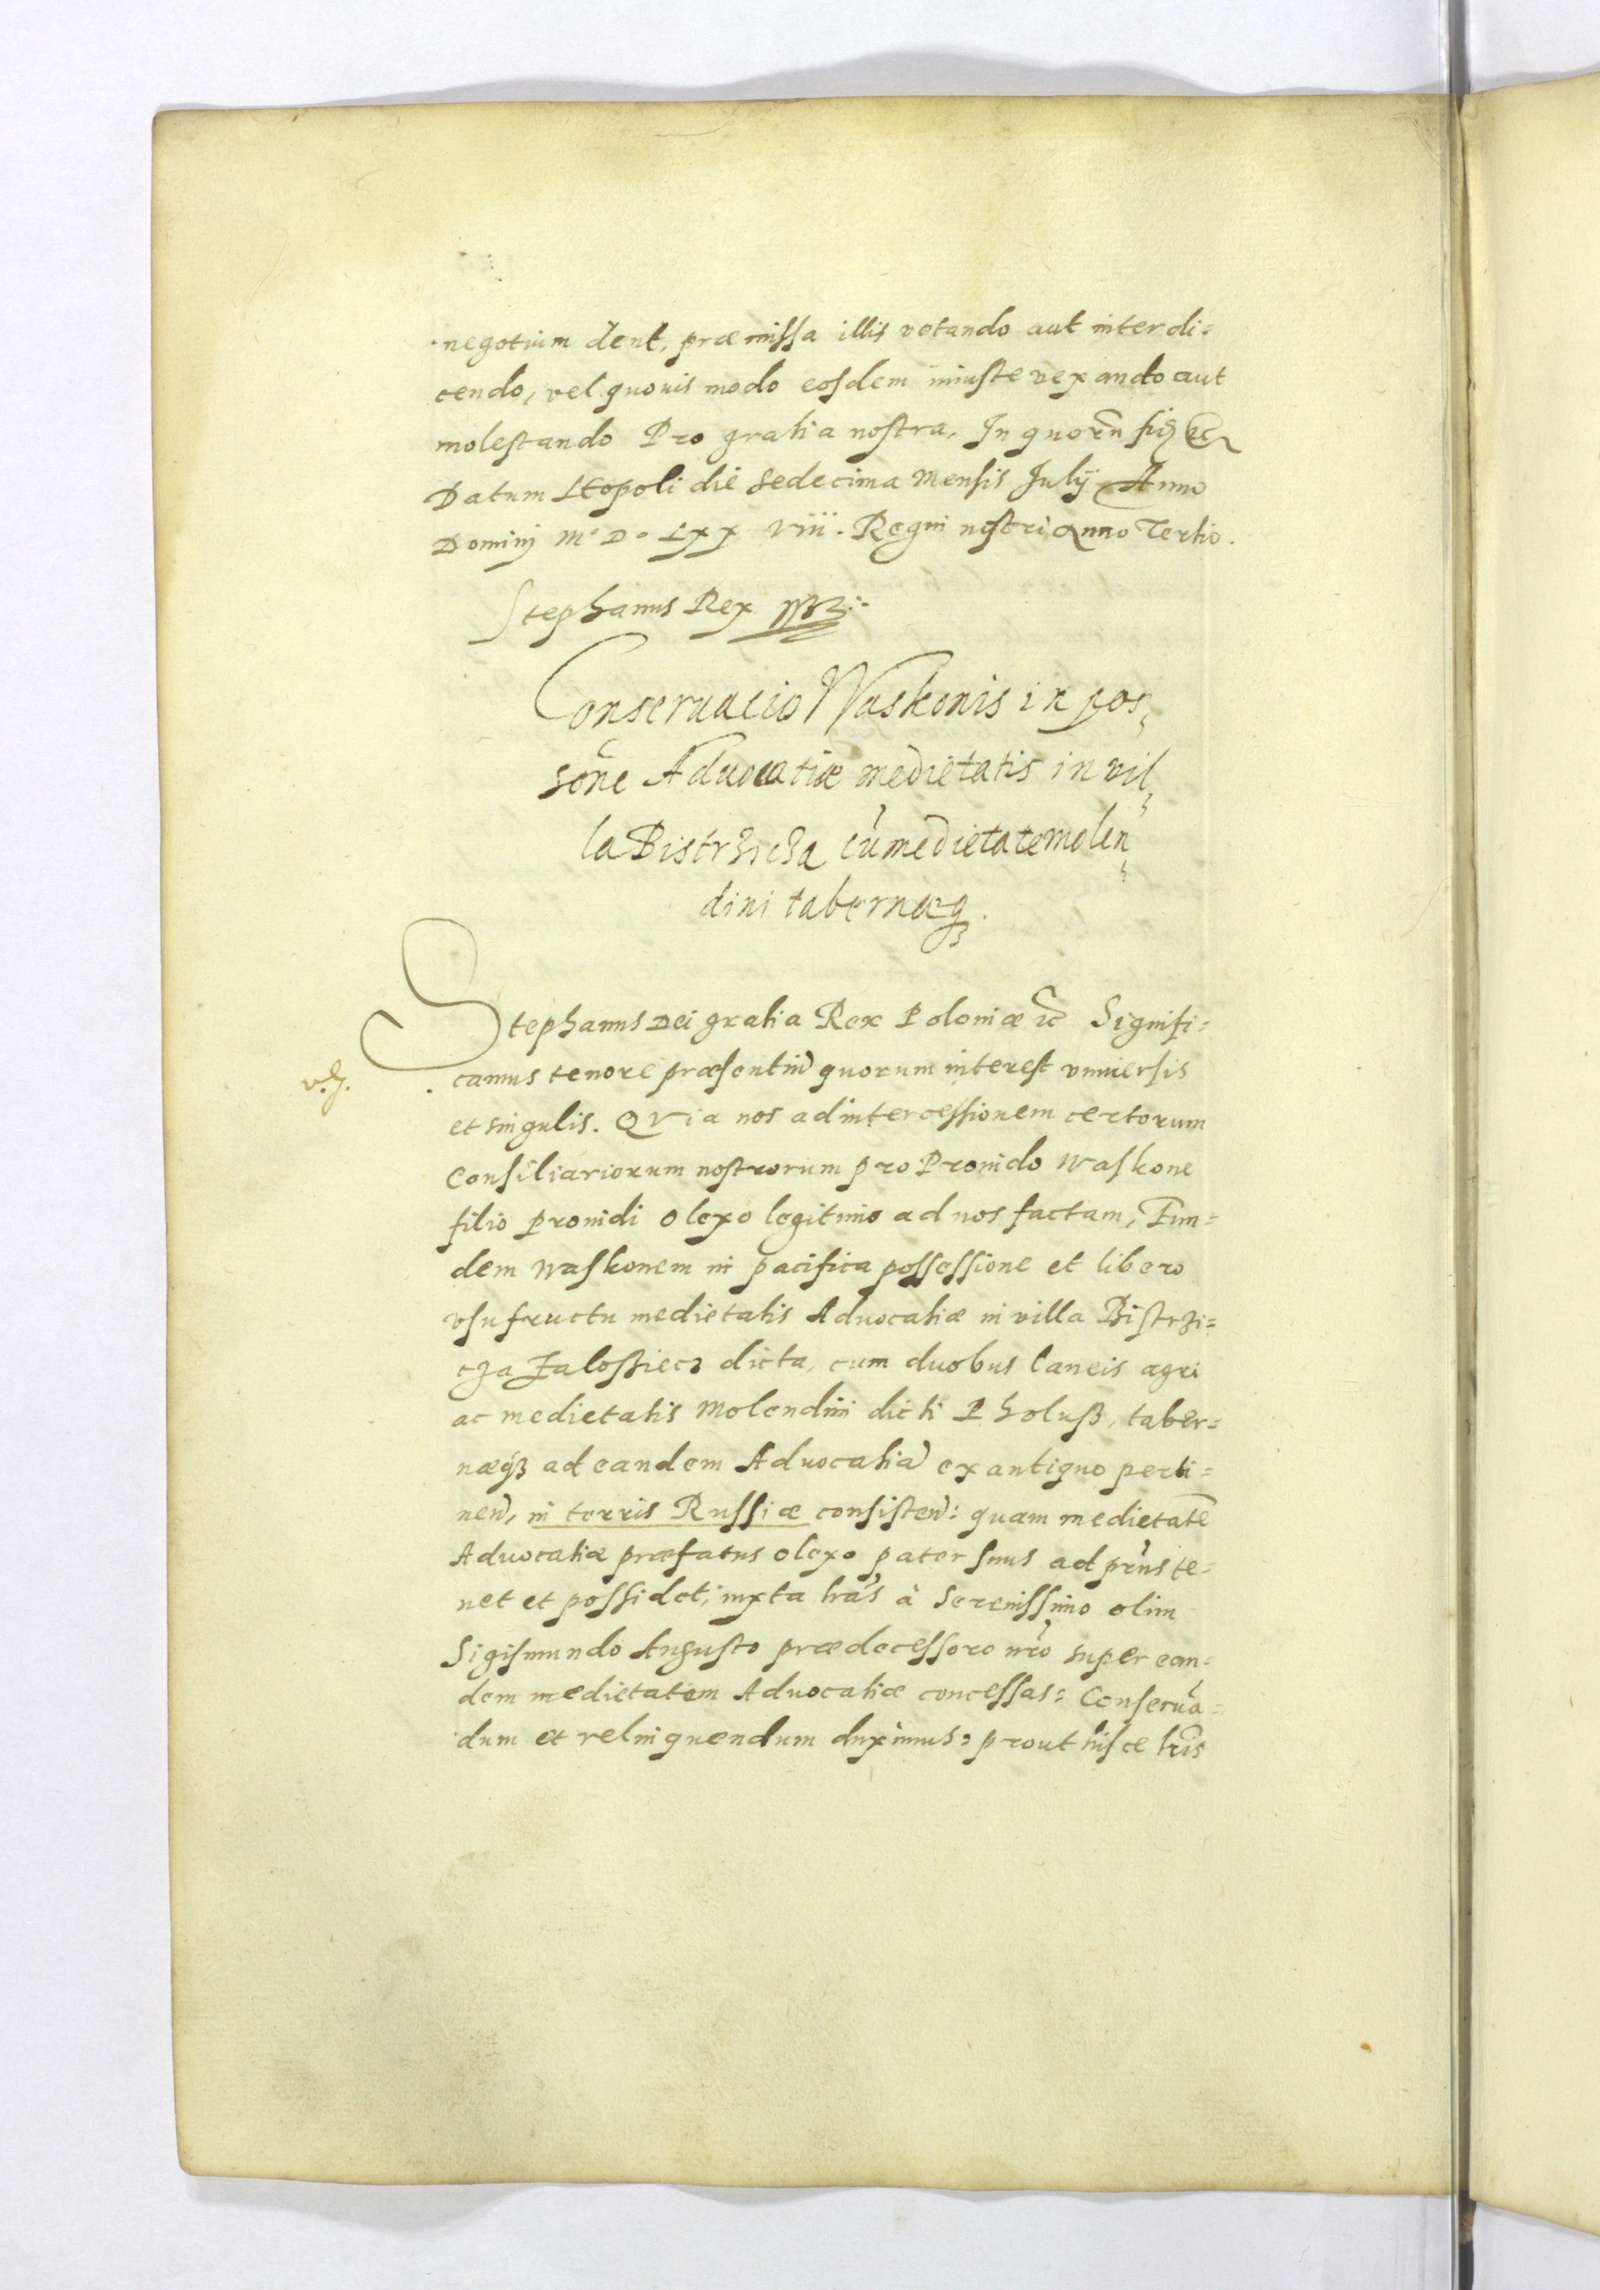 negotium dent, præmissa illis vetando aut interdi=
cendo, vel quouis modo eosdem iniuste vexando aut
molestando Pro gratia nostra, In quorū fid ʒc
Datum Leopoli die sedecima Mensis Julij Anno
Dominj M° D° Lxx viii. Regni nostri Anno Tertio.
Stephanus Rex
Conseruacio Waskonis in pos,
sōne Aduocatiæ medietatis in vil,
la Bistrzicza cū medietate molen,
dini tabernæqȝ.
Stephanus Dei gratia Rex Poloniæ ʒc Signifi=
v.
camus tenore præsentiū quorum interest vniuersis
et singulis. QVia nos ad intercessionem certorum
Consiliariorum nostrorum pro Prouido Waskone
filio Prouidi Olexo legitimo ad nos factam, Eun=
dem Waskonem in pacifica possessione et libero
vsufructu medietatis Aduocatiæ in villa Bistrzi=
cza Zaloßiecz dicta, cum duobus laneis agri
ac medietatis Molendini dicti Pholuß, taber=
næqȝ ad eandem Aduocatiā ex antiquo perti=
neñ, in terris Russiæ consisteñ: quam medietatē
Aduocatiæ præfatus Olexo pater suus ad prñs te=
net et possidet, iuxta lrās à Serenissimo olim
Sigismundo Augusto prædecessore nrō super ean=
dem medietatem Aduocatiæ concessas: Conseruā=
dum et relinquendum duximus: prout hisce lrīs